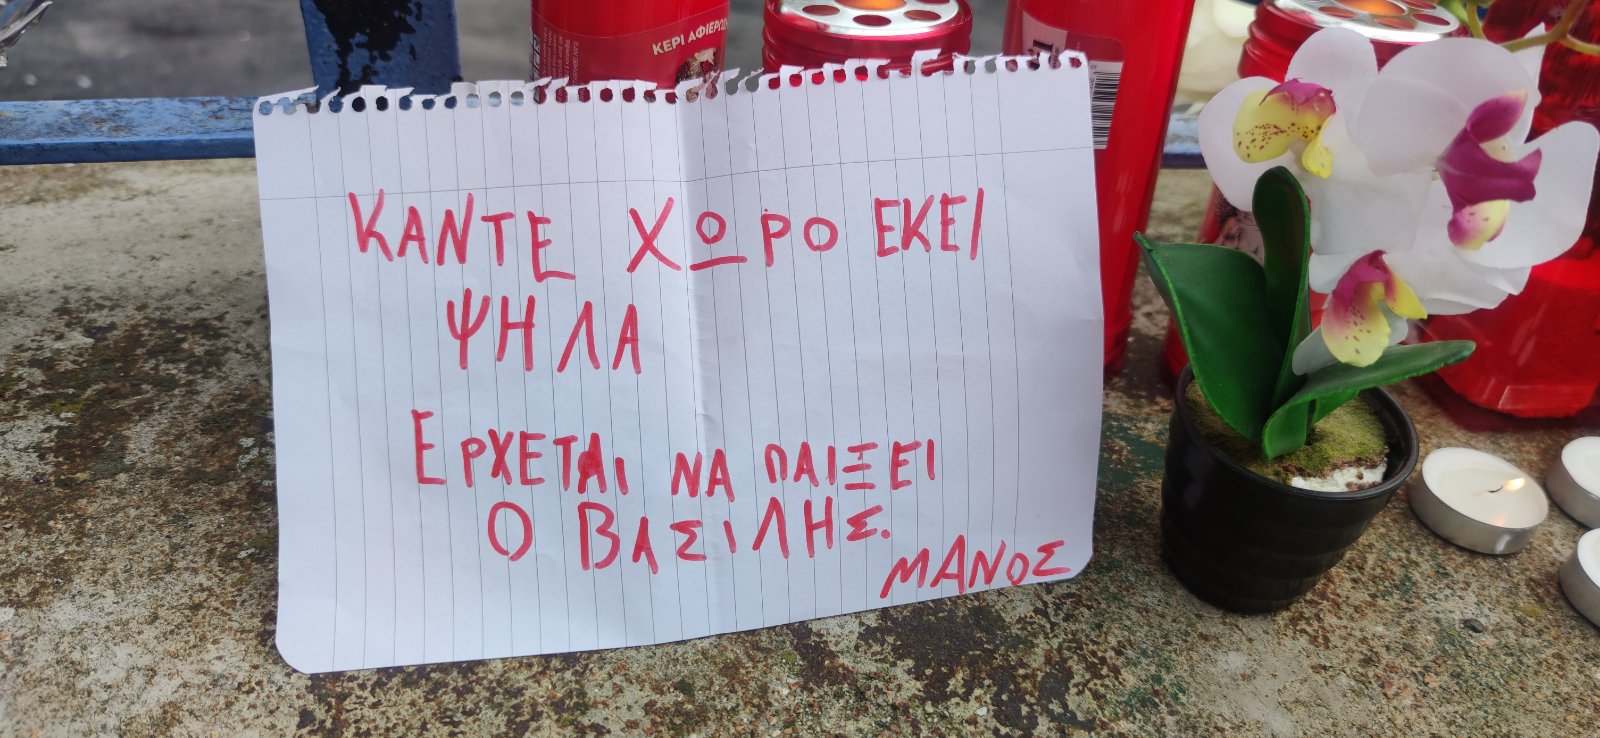 ΚΕΡΙ ΑΦΙΕΡΩΣ
ΚΑΝΤΕ ΧΩΡΟ ΕΚΕΙ
ΨΗΛΑ
ΕΡΧΕΤΑΙ ΝΑ ΠΑΙΞΕΙ
Ο ΒΑΣΙΛΗΣ.
ΜΑΝΟΣ